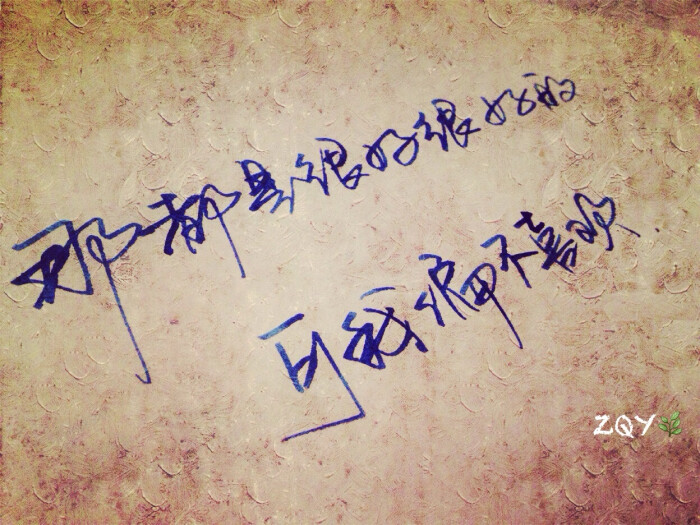 那都是很好很好的
可我偏不喜欢.
ZQY